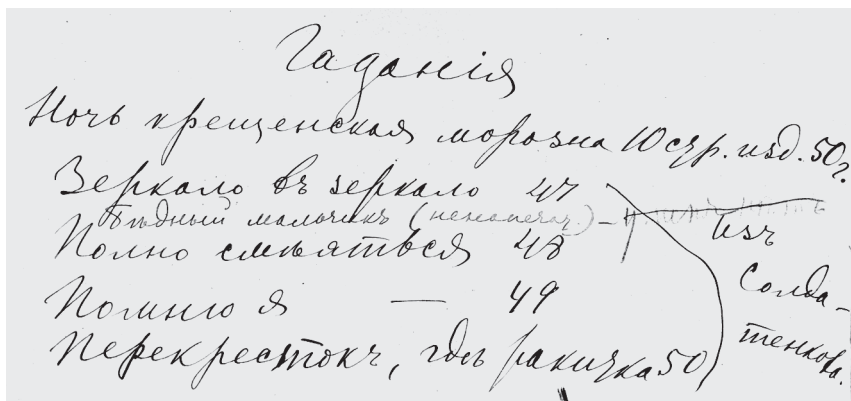 Гаданія
Ночь крещенская морозна 10 стр. изд. 50 г.
Зеркало въ зеркало 47
Бѣдный мальчикъ (ненапечат.) –
Полно смѣяться 48
Помню я — 49
Перекрестокъ, гдѣ ракитка 50
Изъ
Солда-
тенкова.